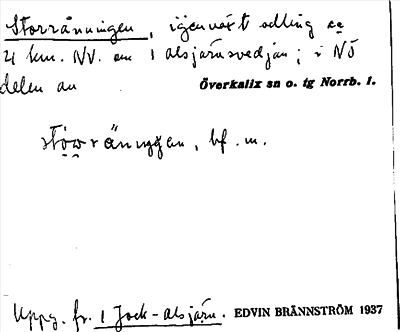 Storrånningen, igenväxt odling ca
4 km. NV. om 1 alsjärnsvedjan; i NÖ
delen av Överkalix sn o. tg Norrb. l.
bf. m.
Uppg. fr. 1 Jock-alsjärn. EDVIN BRÄNNSTRÖM 1937